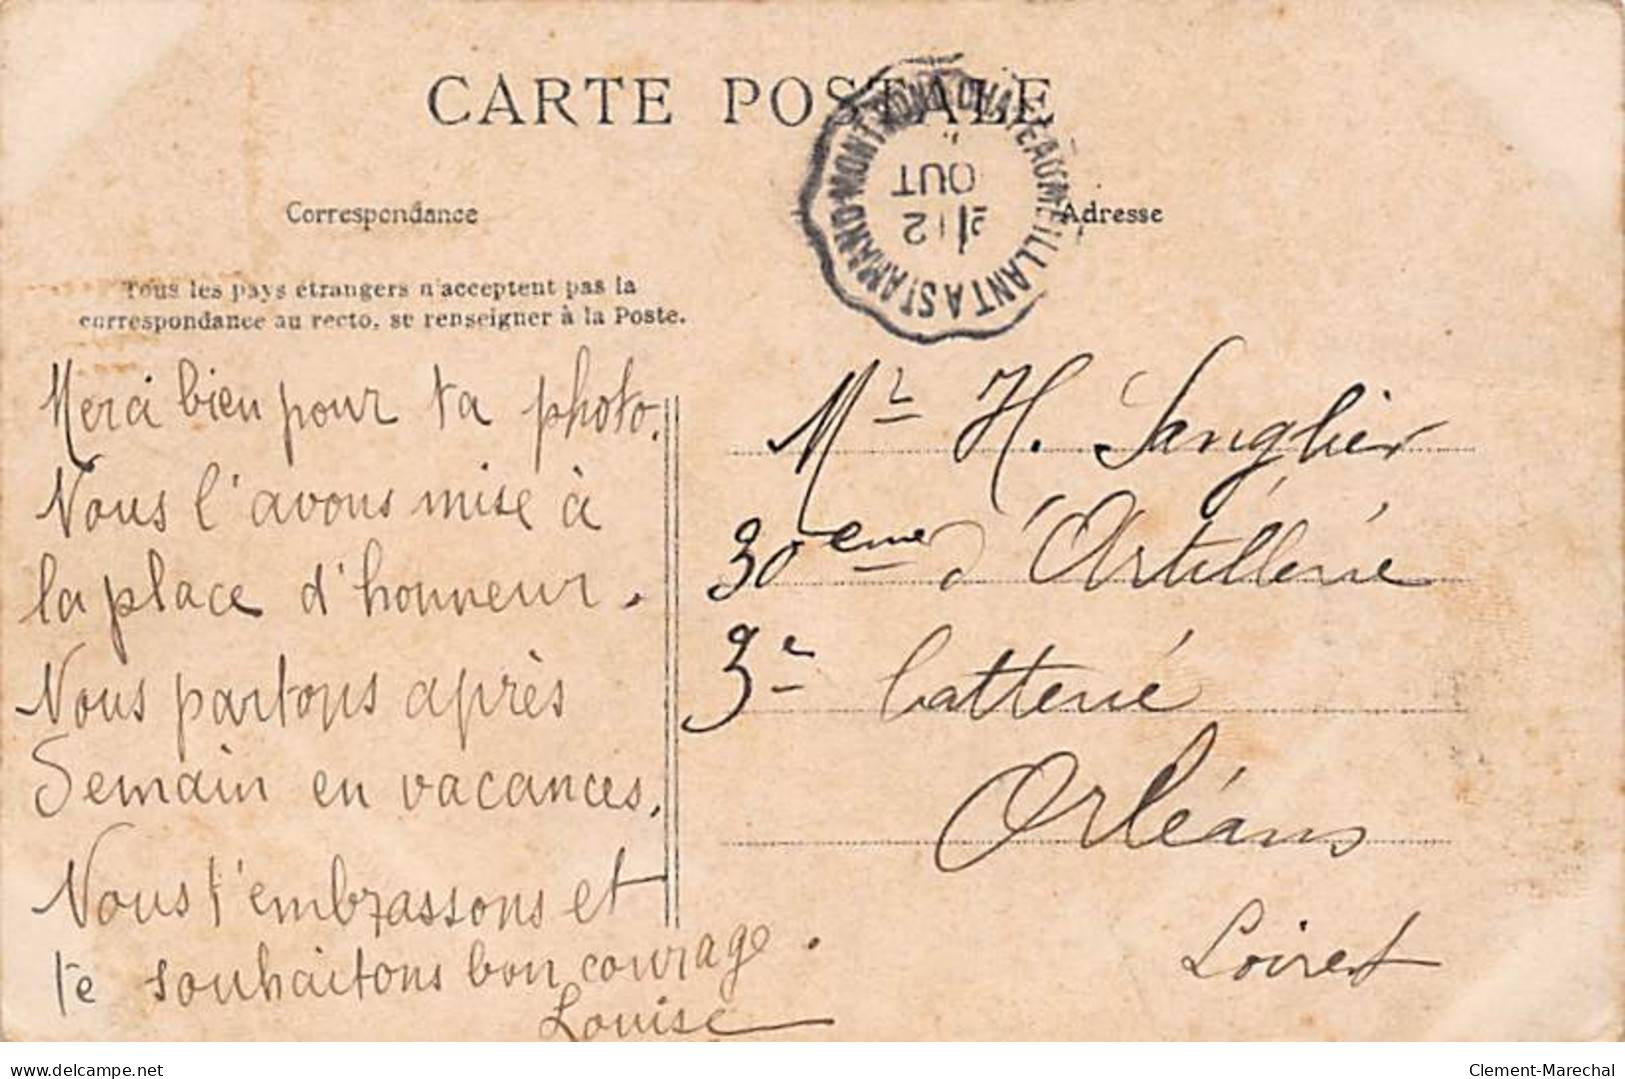 CARTE POSTALE
CHATEAUMEILLANT A ST AMAND-MONTROND
OUT
12
Correspondance
Adresse
Tous les pays étrangers n'acceptent pas la
correspondance au recto, se renseigner à la Poste.
Merci bien pour ta photo.
Nous l'avons mise à
la place d'honneur.
Nous partons après
Demain en vacances.
Nous t'embrassons et
te souhaitons bon courage.
Louise
Mr H. Sanglier
30eme d'Artillerie
3e batterie
Orléans
Loiret
delcampe.net
Clement-Marechal